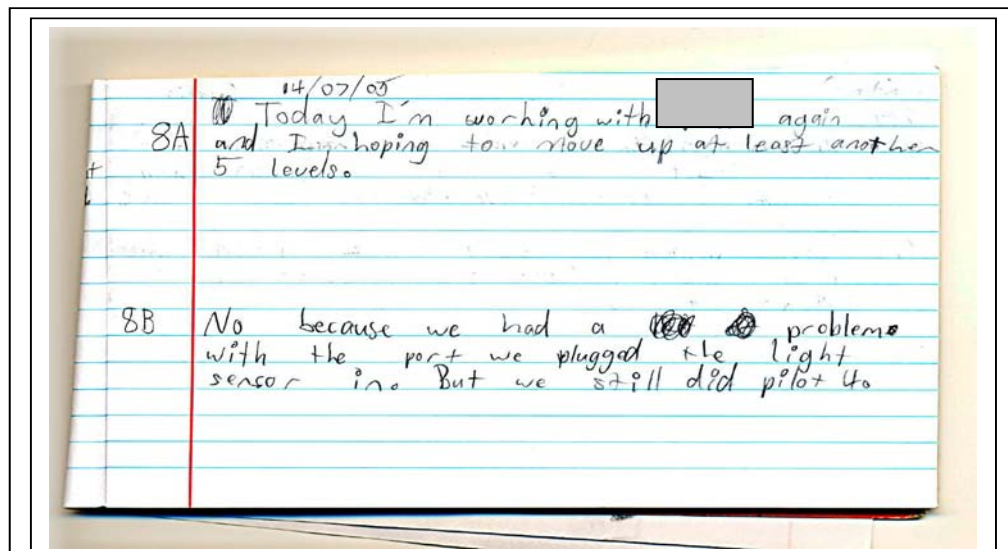 14/07/05
Today I'm working with again
8A and I hoping to move up at least another
5 levels.
8B No because we had a problem
with the port we plugged the light
sensor in. But we still did pilot 4.